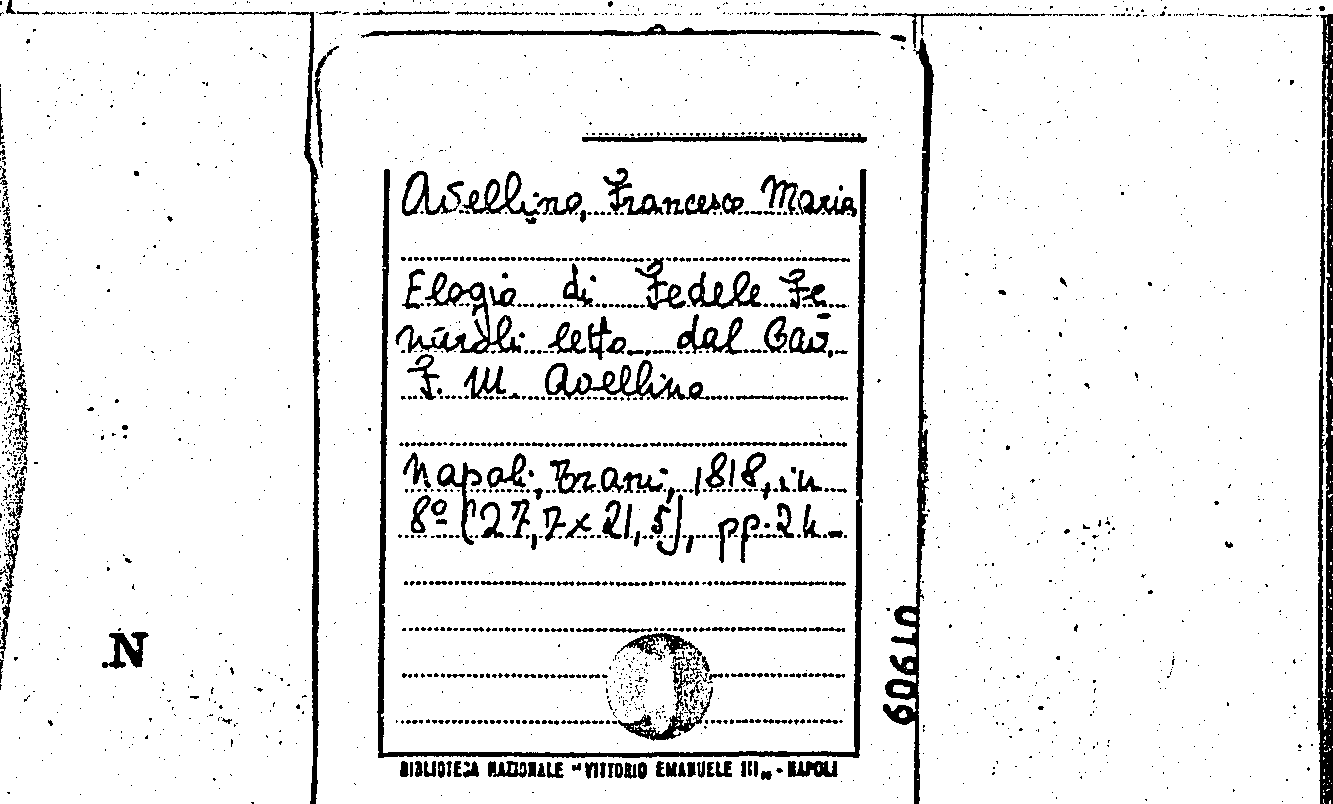 Avellino, Francesco Maria
Elogio di Fedele Fe
naroli letto dal Cav.
F. M. Avellino
Napoli, Trani, 1818, in
8º (27,7 x 21,5), pp. 24
BIBLIOTECA NAZIONALE "VITTORIO EMANUELE III„ - NAPOLI
N